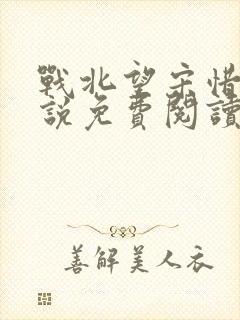 戰北望宋惜
說免費閱讀
善解美人衣